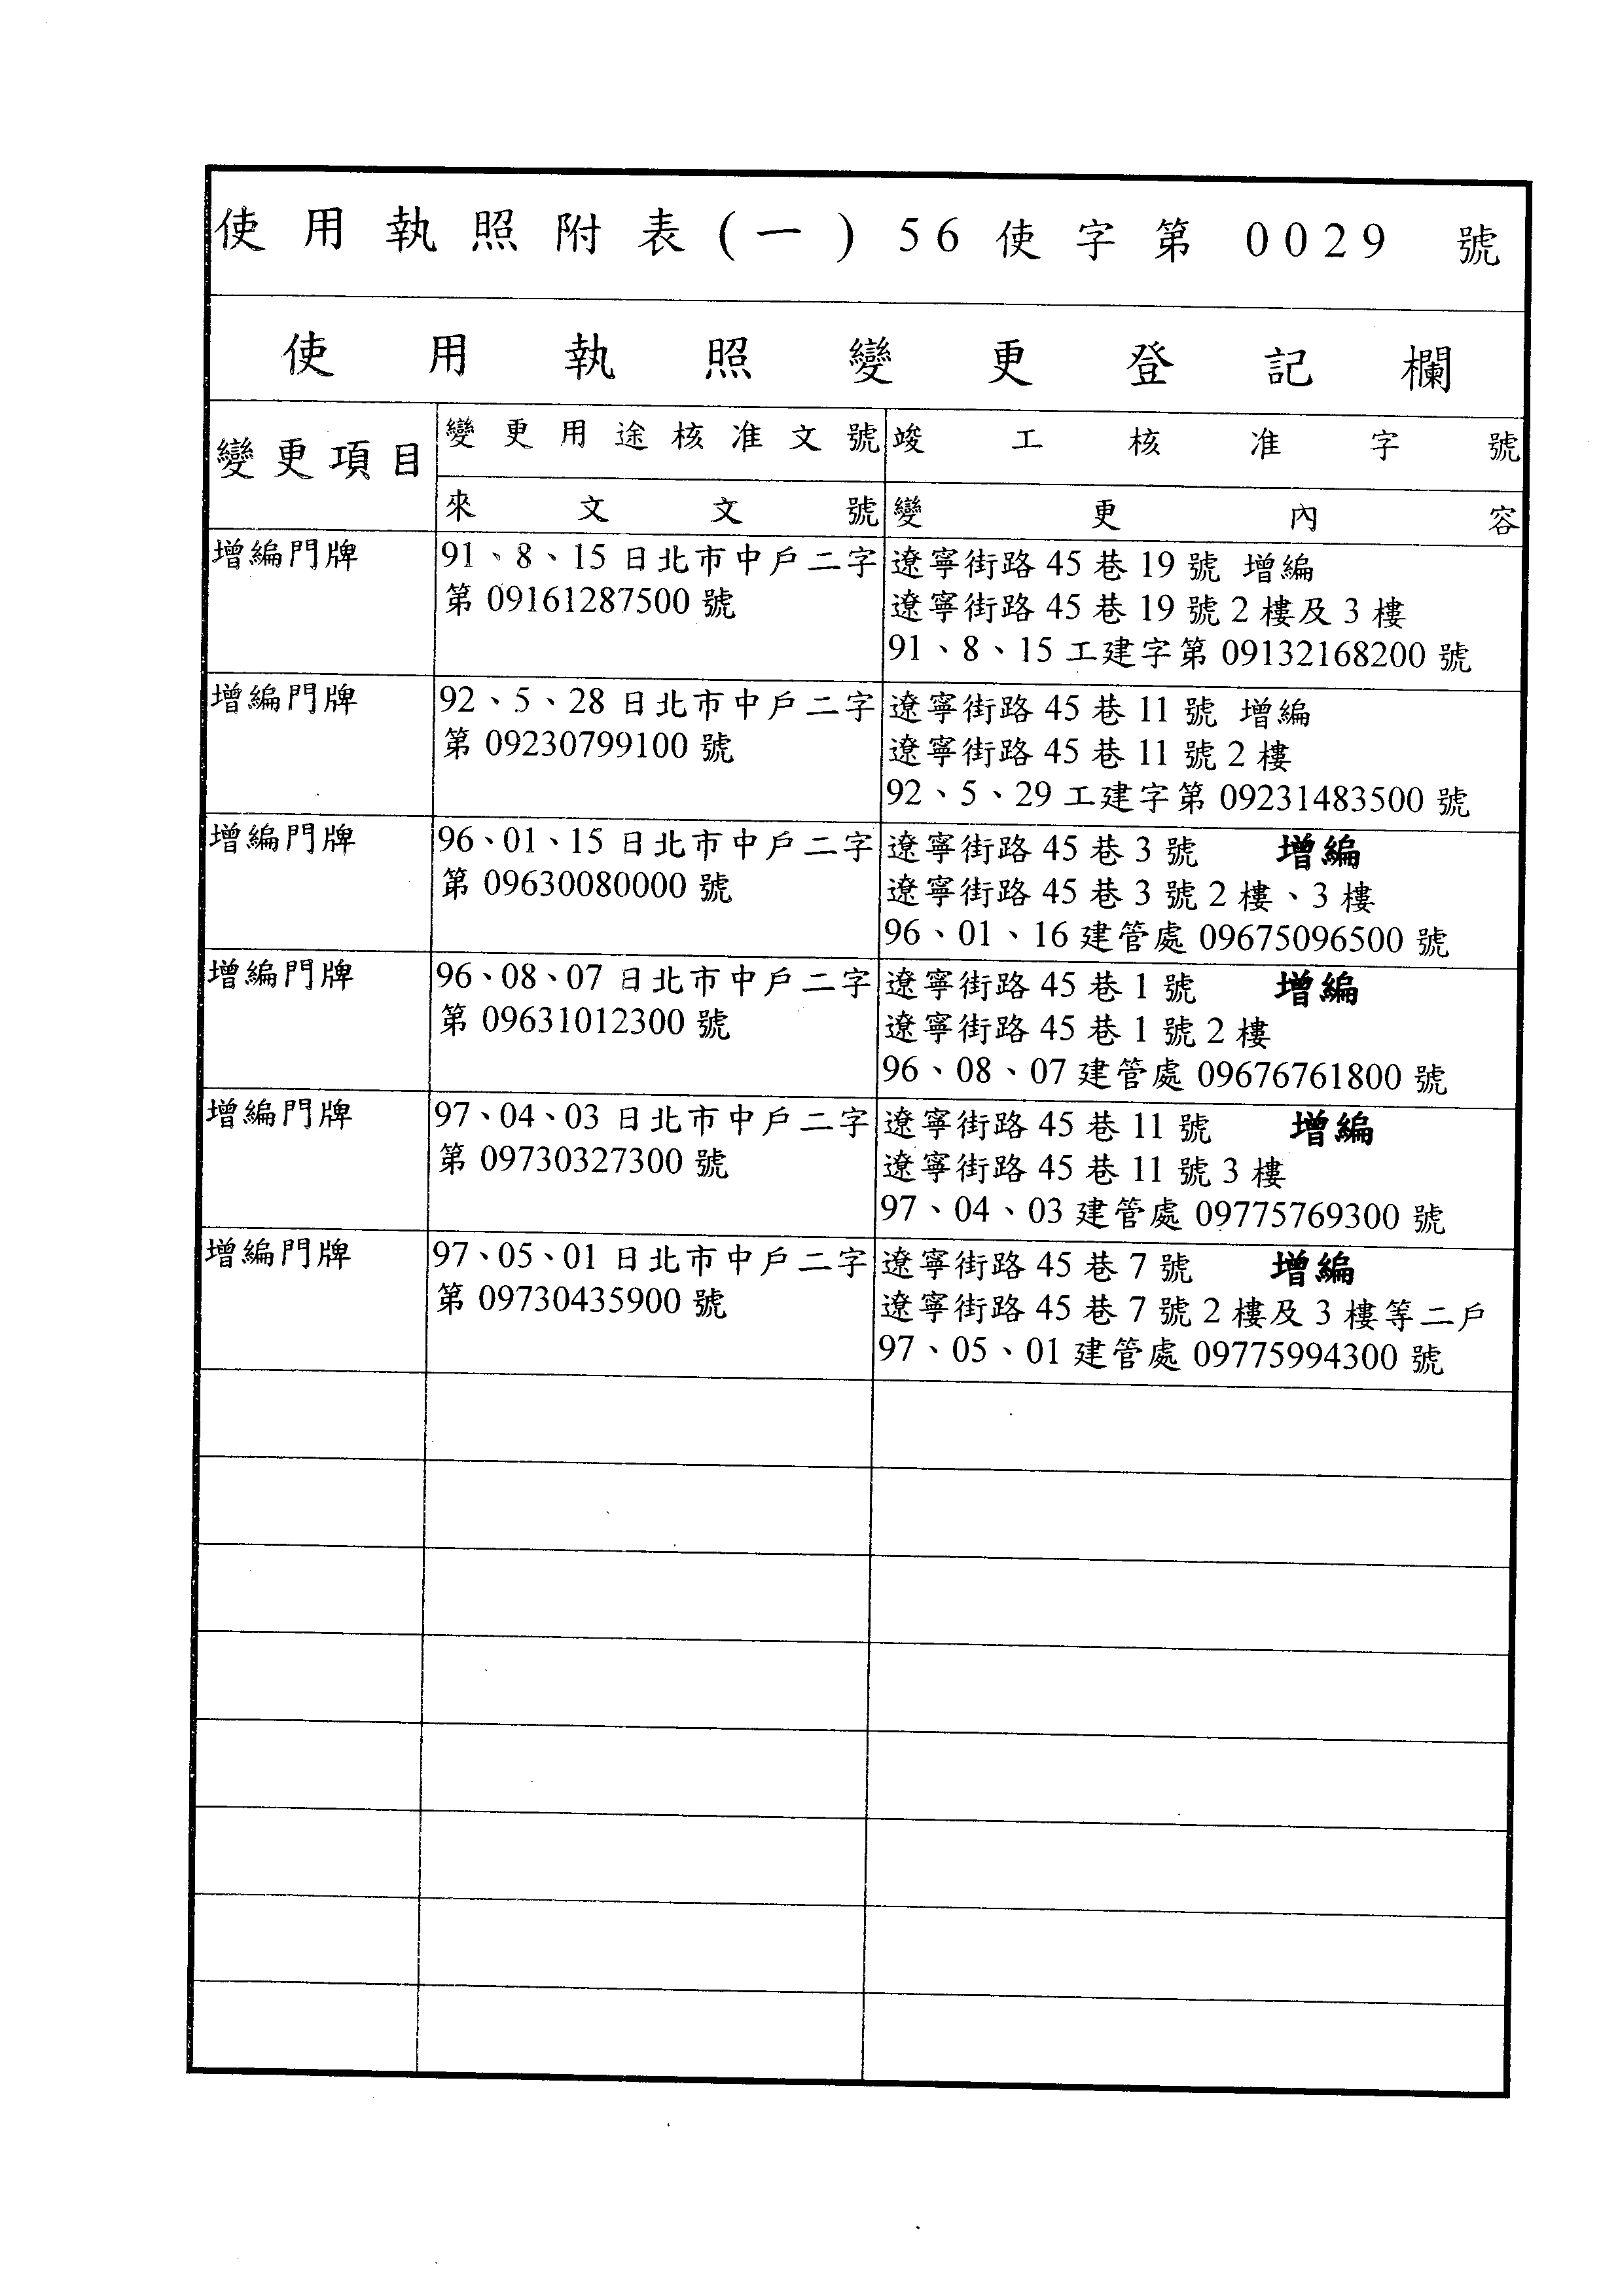 使用執照附表(一)56使字第 0029 號
使用執照變更登記欄
變更項目
變更用途核准文號
竣工核准字號
來文文號
變更內容
增編門牌
91、8、15日北市中戶二字
第 09161287500 號
遼寧街路 45 巷 19 號 增編
遼寧街路 45 巷 19 號 2 樓及 3 樓
91、8、15 工建字第 09132168200 號
增編門牌
92、5、28 日北市中戶二字
第 09230799100 號
遼寧街路 45 巷 11 號 增編
遼寧街路 45 巷 11 號 2 樓
92、5、29 工建字第 09231483500 號
增編門牌
96、01、15 日北市中戶二字
第 09630080000 號
遼寧街路 45 巷 3 號 增編
遼寧街路 45 巷 3 號 2 樓、3 樓
96、01、16 建管處 09675096500 號
增編門牌
96、08、07 日北市中戶二字
第 09631012300 號
遼寧街路 45 巷 1 號 增編
遼寧街路 45 巷 1 號 2 樓
96、08、07 建管處 09676761800 號
增編門牌
97、04、03 日北市中戶二字
第 09730327300 號
遼寧街路 45 巷 11 號 增編
遼寧街路 45 巷 11 號 3 樓
97、04、03 建管處 09775769300 號
增編門牌
97、05、01 日北市中戶二字
第 09730435900 號
遼寧街路 45 巷 7 號 增編
遼寧街路 45 巷 7 號 2 樓及 3 樓等二戶
97、05、01 建管處 09775994300 號